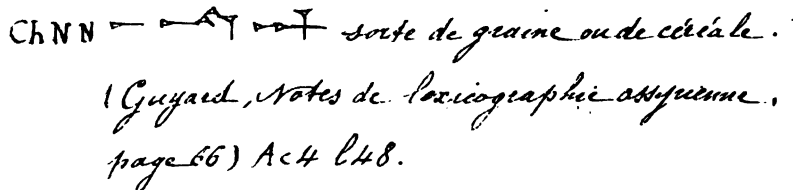 ChNN 𒀸 𒈾 𒀭 sorte de graine ou de céréale.
(Guyard, Notes de lexicographie assyrienne.
page 66) Ac4 l48.